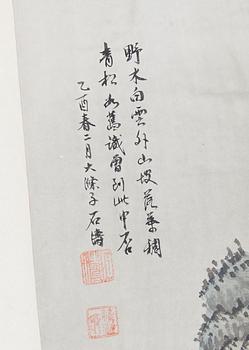 野木白雲外山坡荒葉稠
青松如舊識曾到此中否
乙酉春二月大滌子石濤